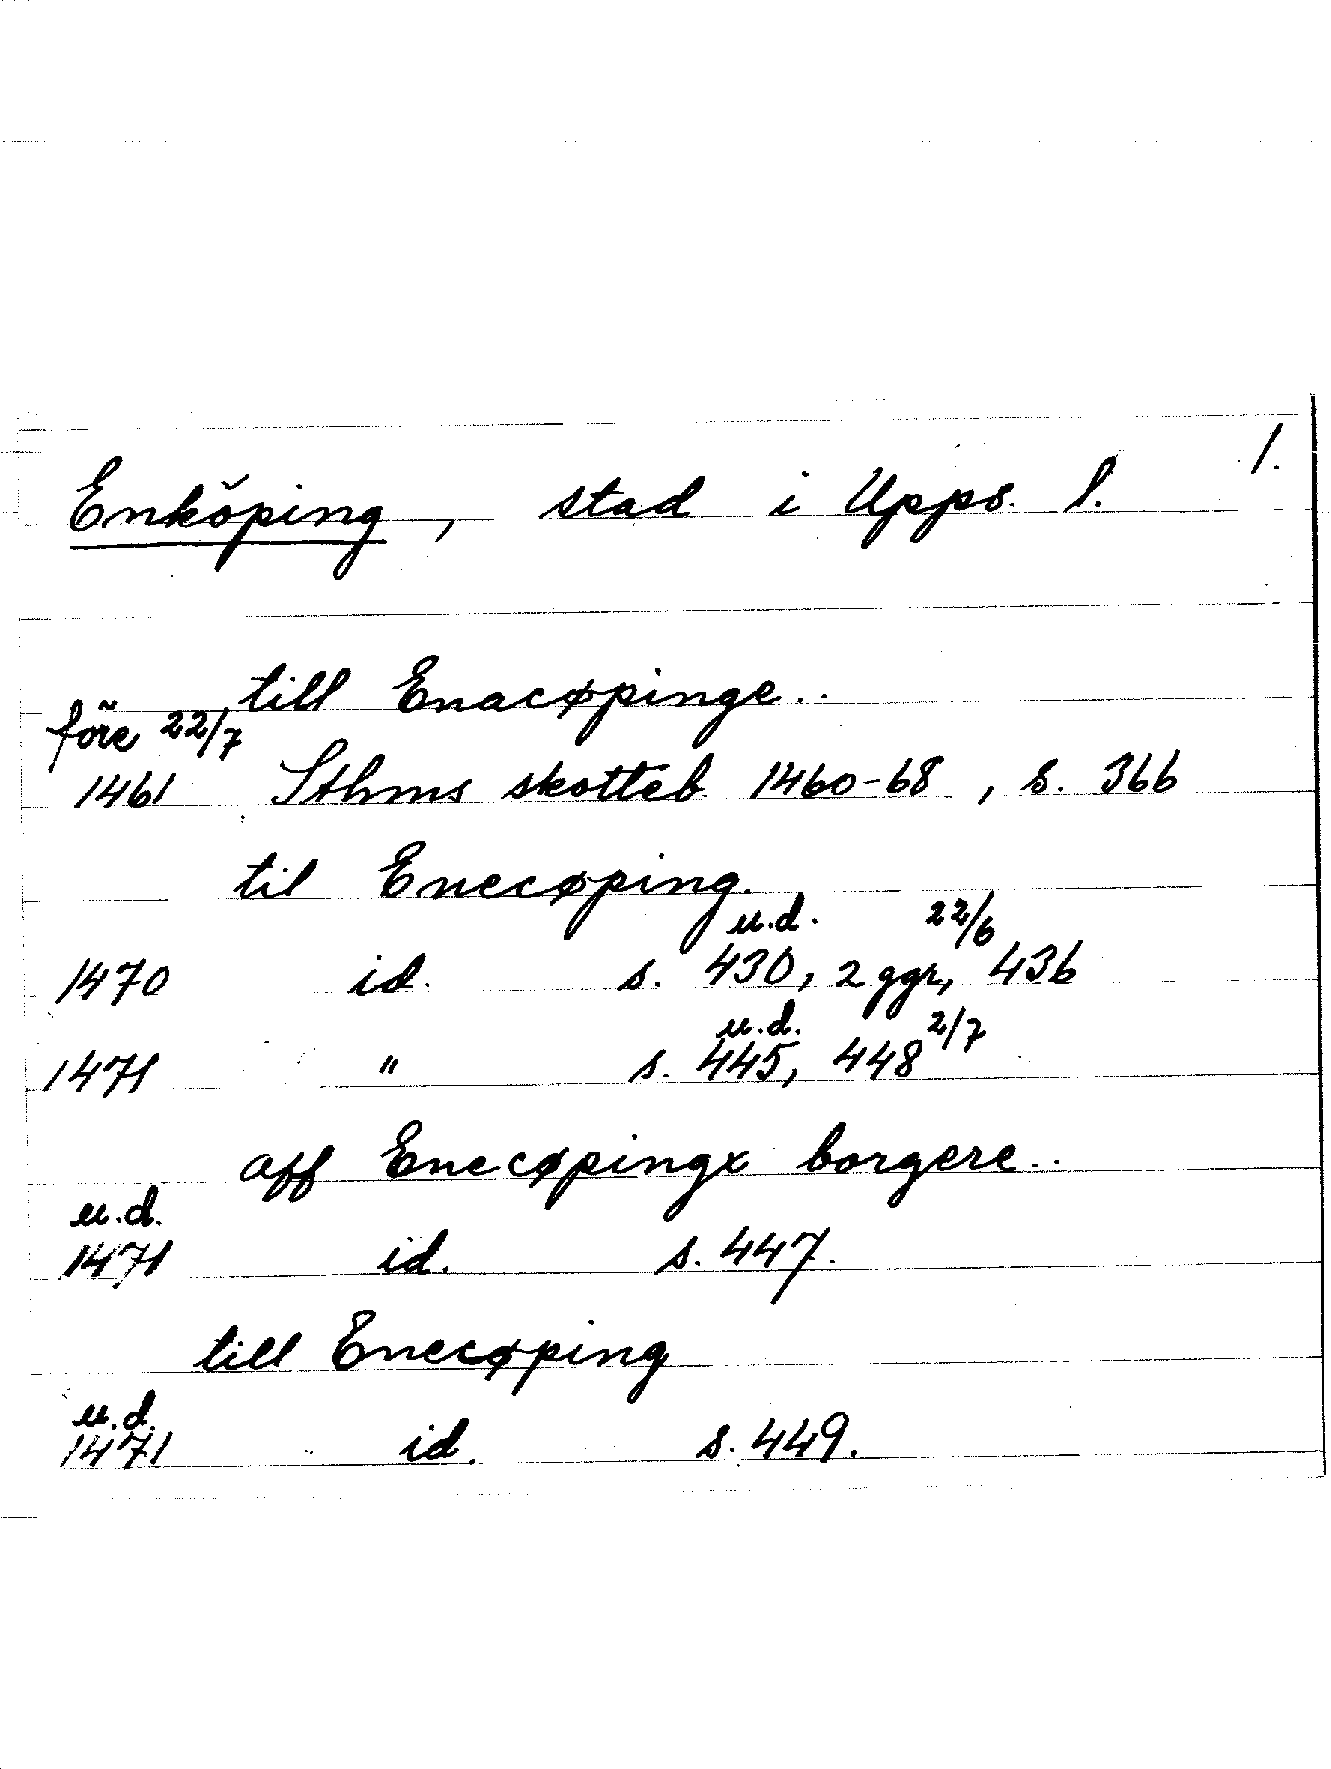 1.
Enköping, stad i Upps. l.
till Enacøpinge..
före 22/7
1461 Sthms skotteb 1460-68, s. 366
til Enecøping.
u.d. 22/6
1470 id. s. 430, 2 ggr, 436
u.d. 2/7
1471 " s. 445, 448
aff Enecøpingx borgere..
u.d.
1471 id. s. 447.
till Enecøping
u.d.
1471 id. s. 449.